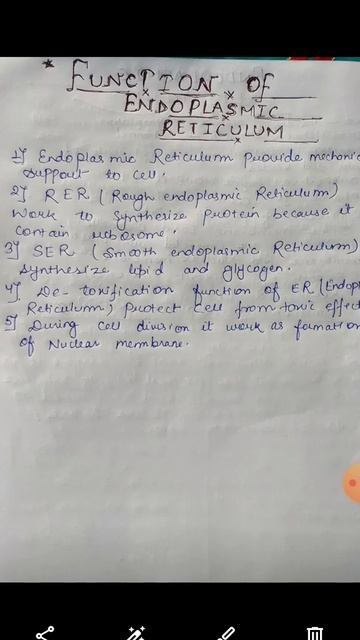 * FUNCTION OF
ENDOPLASMIC
RETICULUM
1] Endoplasmic Reticulum provide mechanic
support to cell.
2] RER (Rough endoplasmic Reticulum)
Work to synthesize protein because it
contain ribosome.
3] SER (Smooth endoplasmic Reticulum)
synthesize lipid and glycogen.
4] De-toxification function of ER (Endopl
Reticulum) Protect cell from toxic effect
5] During cell division it work as formation
of Nuclear membrane.